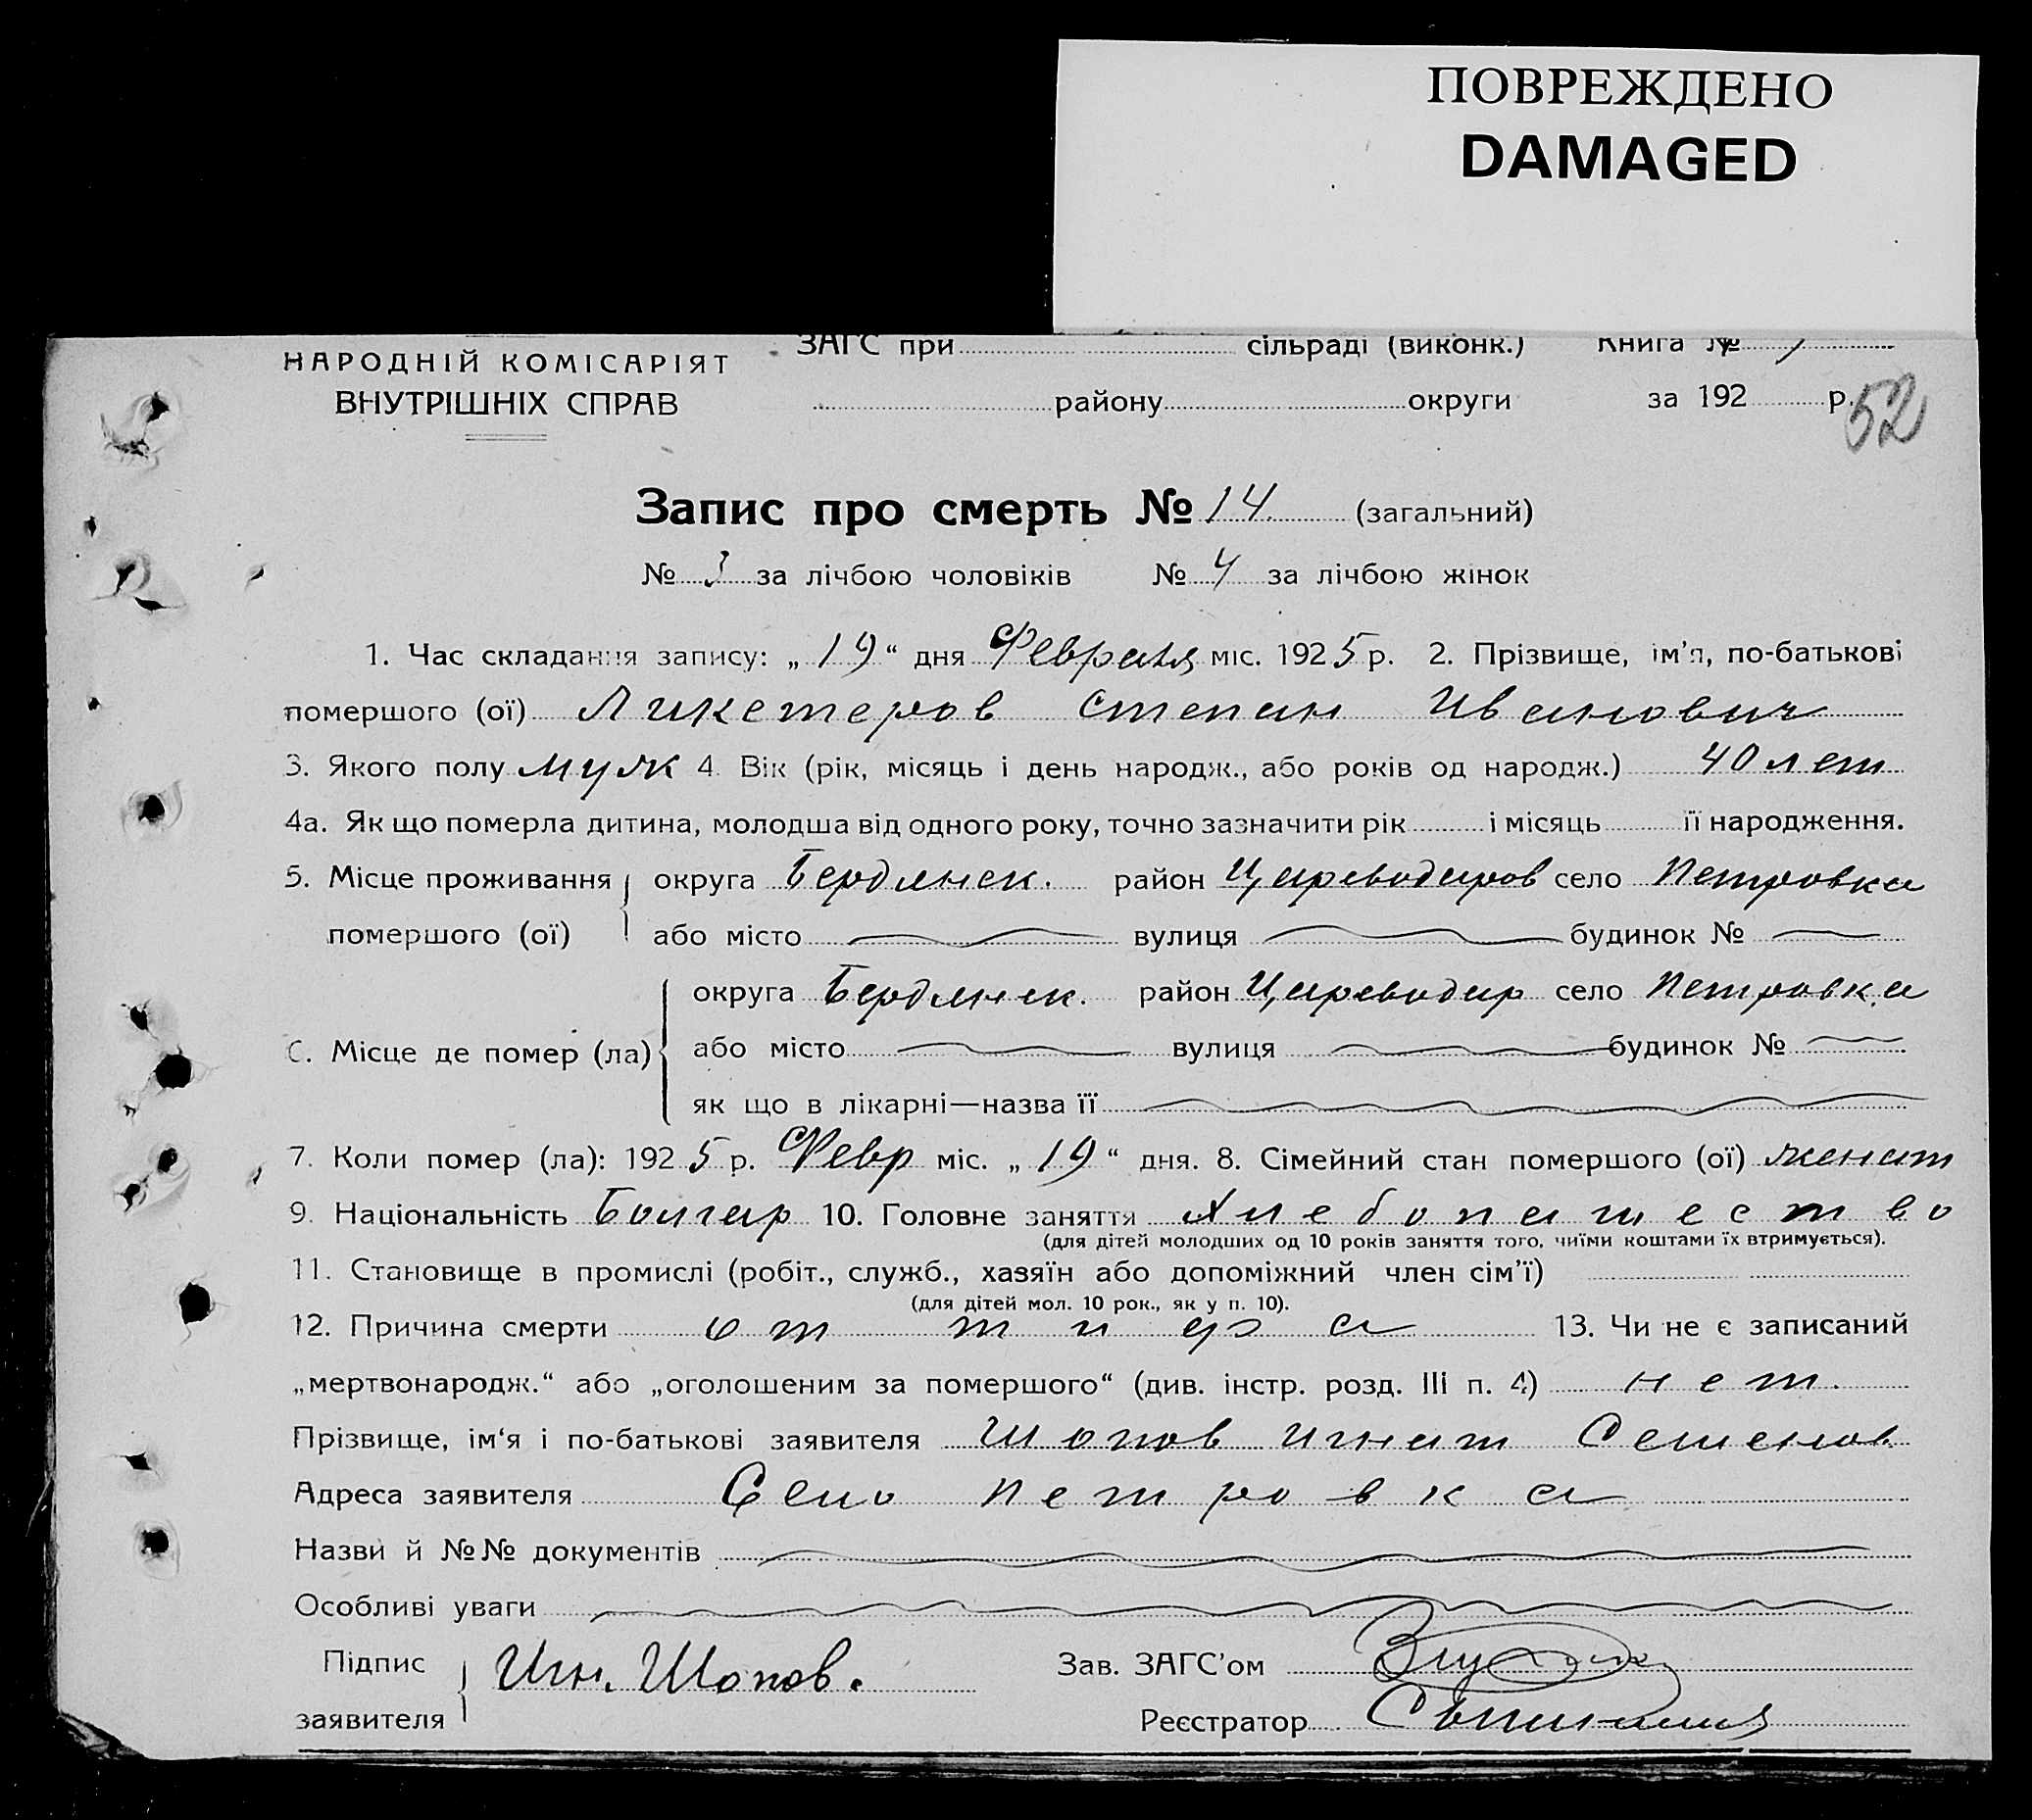 ПОВРЕЖДЕНО
DAMAGED
НАРОДНІЙ КОМІСАРІЯТ ЗАГС при сільраді (виконк.) Книга №
ВНУТРІШНІХ СПРАВ району округи за 192 р.
52
Запис про смерть № 14 (загальний)
№ 3 за лічбою чоловіків № 4 за лічбою жінок
1. Час складання запису: „ 19 “ дня Февраля міс. 1925 р. 2. Прізвище, ім'я, по-батькові
помершого (ої) Ликетеров Степан Иванович
3. Якого полу муж 4. Вік (рік, місяць і день народж., або років од народж.) 40 лет
4а. Як що померла дитина, молодша від одного року, точно зазначити рік і місяць її народження.
5. Місце проживання округа Бердянск. район Цареводаров село Петровка
помершого (ої) або місто вулиця будинок №
округа Бердянск. район Цареводар село Петровка
6. Місце де помер (ла) або місто вулиця будинок №
як що в лікарні—назва її
7. Коли помер (ла): 1925 р. Февр міс. „ 19 “ дня. 8. Сімейний стан помершого (ої) женат
9. Національність Болгар 10. Головне заняття Хлебопашество
(для дітей молодших од 10 років заняття того, чиїми коштами їх втримується).
11. Становище в промислі (робіт., служб., хазяїн або допоміжний член сім'ї)
(для дітей мол. 10 рок., як у п. 10).
12. Причина смерти от тифа 13. Чи не є записаний
„мертвонародж.“ або „оголошеним за помершого“ (див. інстр. розд. III п. 4) нет.
Прізвище, ім'я і по-батькові заявителя Шопов Игнат Семенов.
Адреса заявителя Село Петровка
Назви й №№ документів
Особливі уваги
Підпис Игн. Шопов. Зав. ЗАГС'ом
заявителя Реєстратор